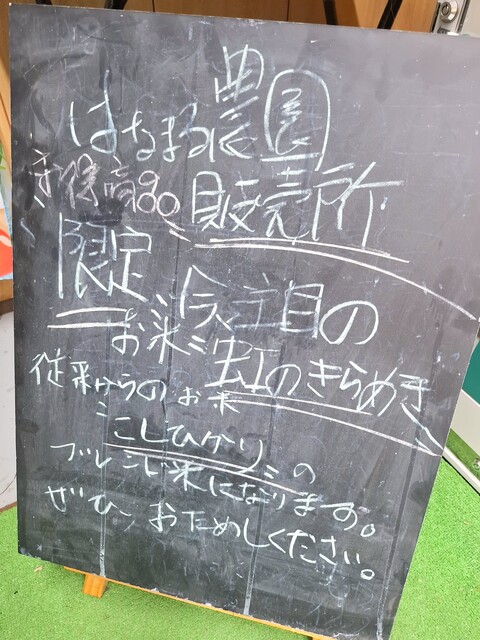 はなまる農園
販売所
限定、今、注目の
お米 虹のきらめき
従来からのお米
こしひかりの
ブレンド米になります。
ぜひ、おためしください。